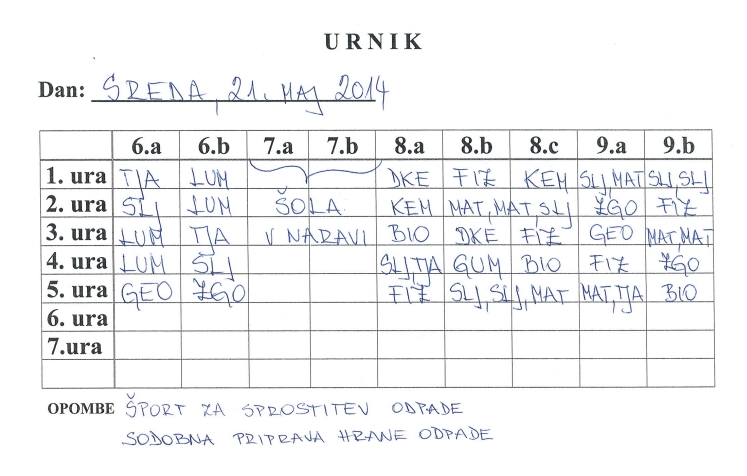 URNIK
Dan: SREDA, 21. MAJ 2014
6.a 6.b 7.a 7.b 8.a 8.b 8.c 9.a 9.b
1. ura TJA LUM DKE FIZ KEM SLJ,MAT SLJ,SLJ
2. ura SLJ LUM ŠOLA KEM MAT,MAT,SLJ ZGO FIZ
3. ura LUM TJA V NARAVI BIO DKE FIZ GEO MAT,MAT
4. ura LUM SLJ SLJ,TJA GUM BIO FIZ ZGO
5. ura GEO ZGO FIZ SLJ,SLJ,MAT MAT,TJA BIO
6. ura
7.ura
OPOMBE ŠPORT ZA SPROSTITEV ODPADE
SODOBNA PRIPRAVA HRANE ODPADE